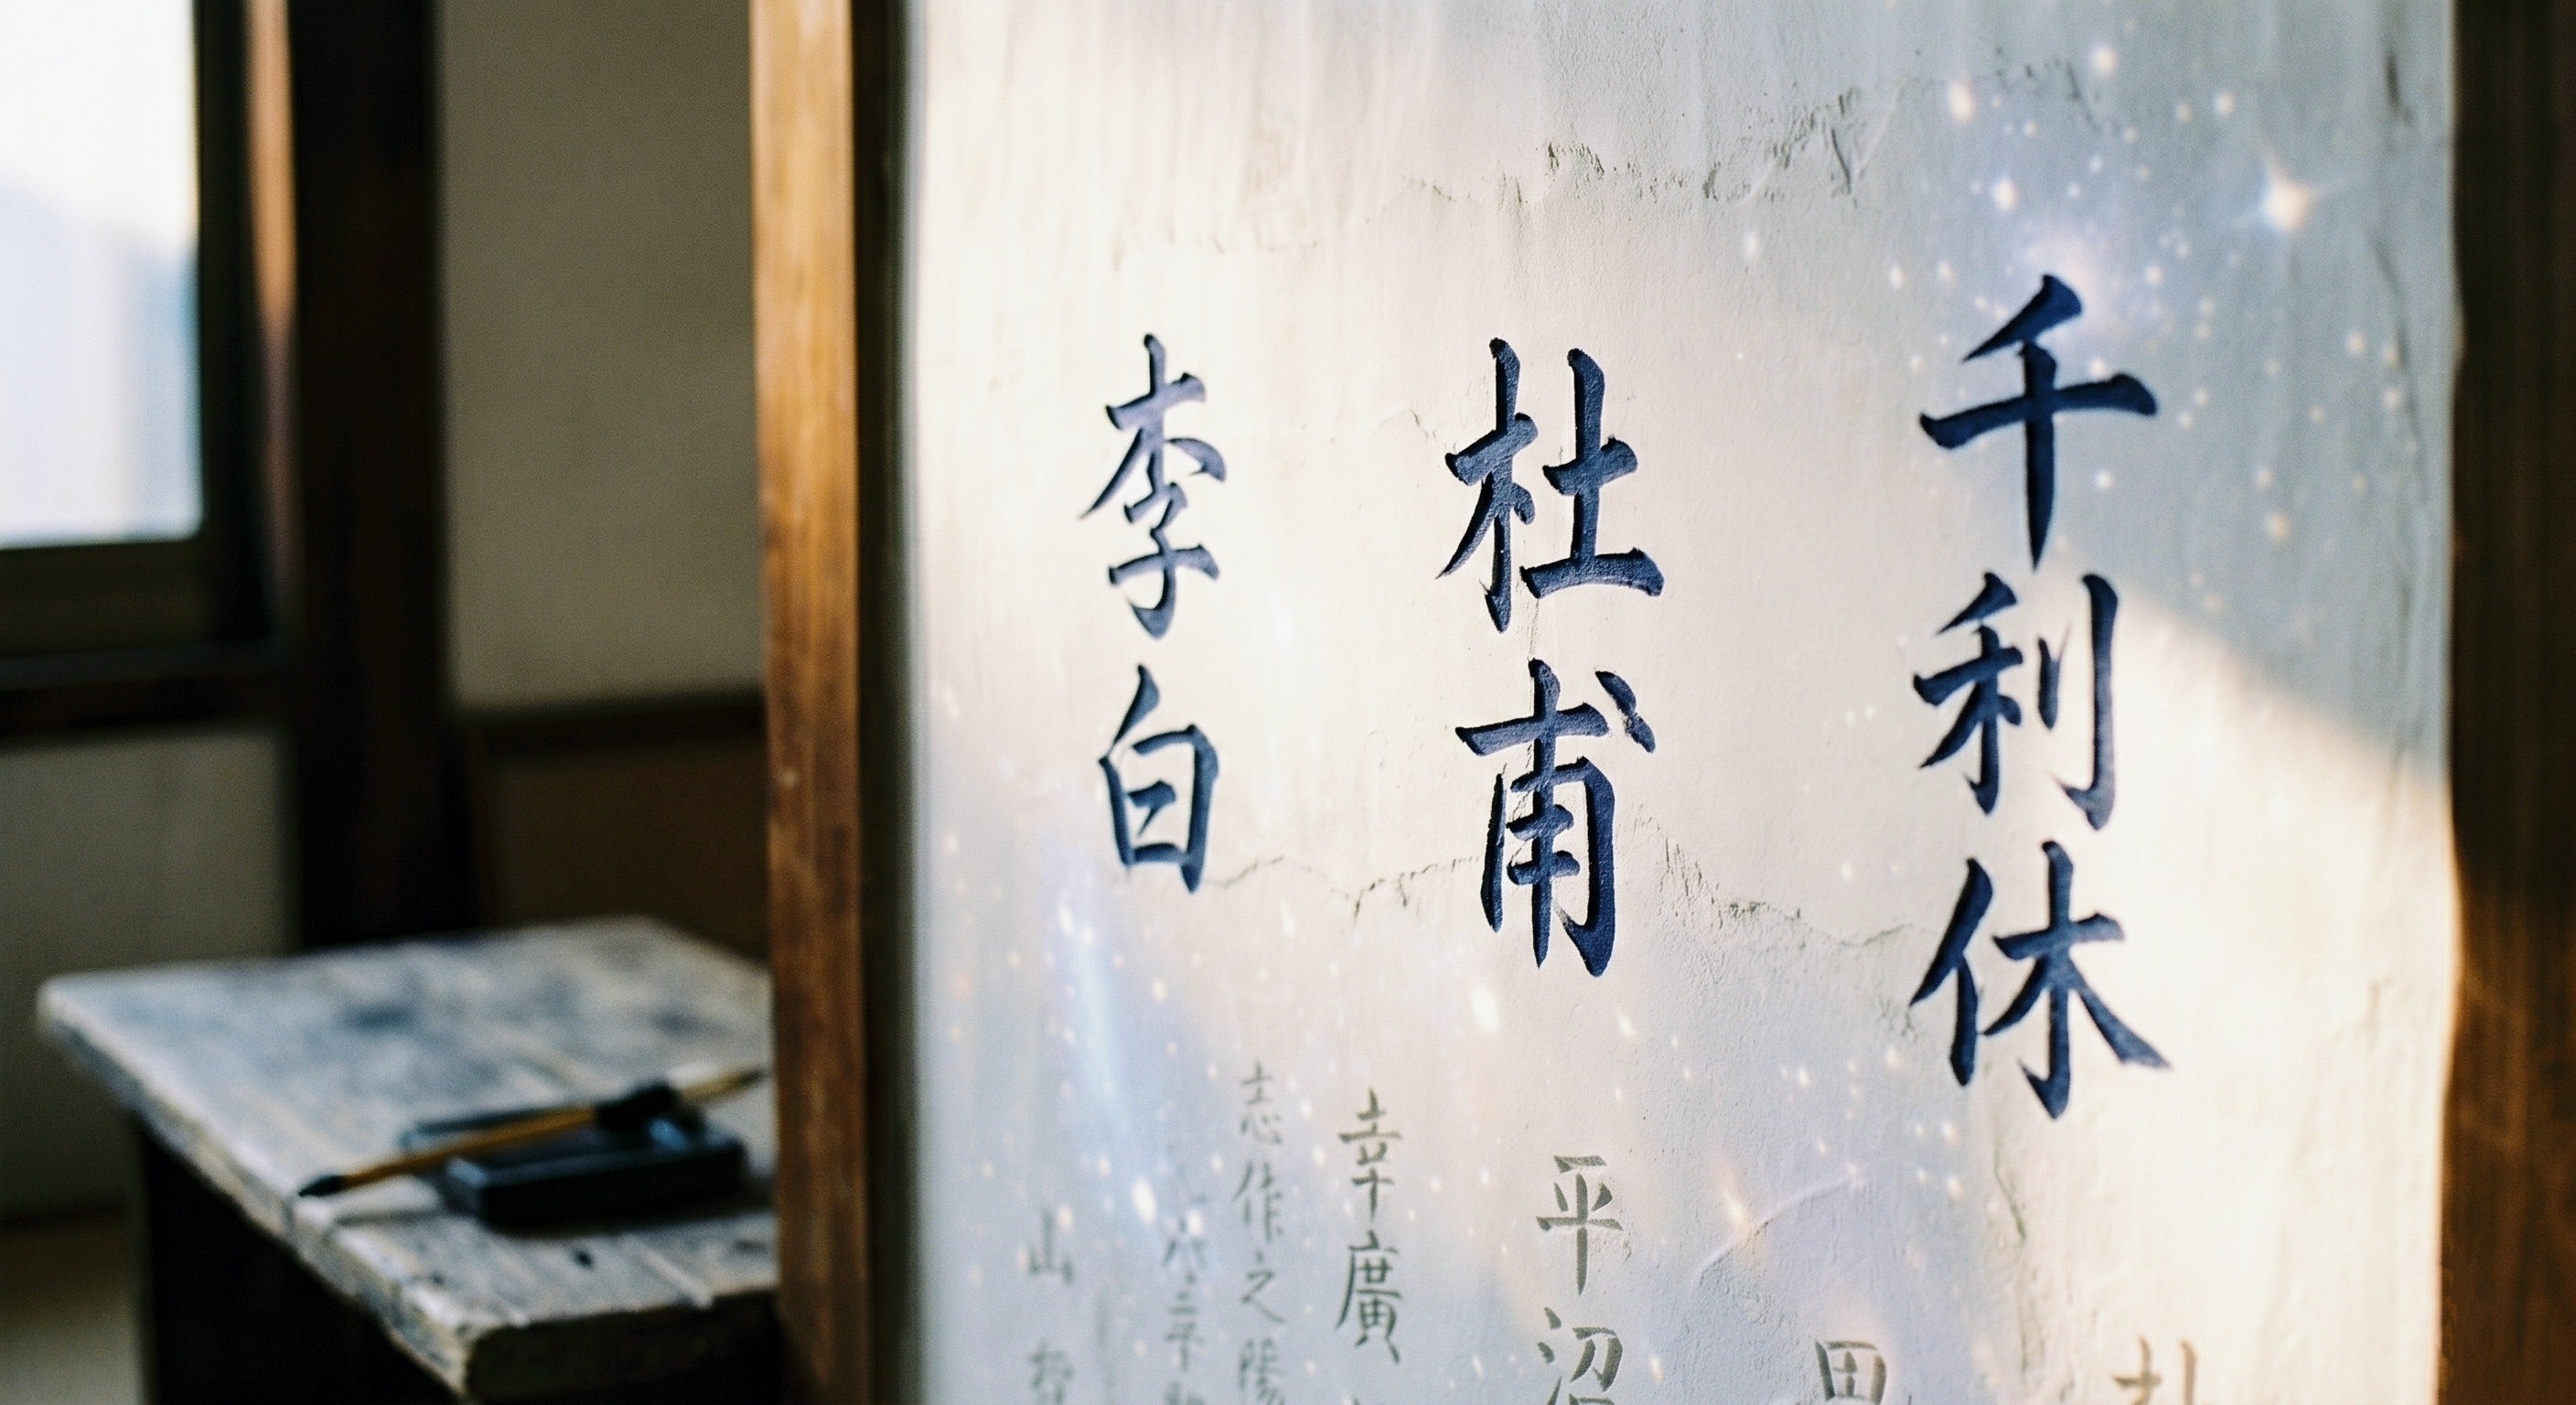 千利休
杜甫
李白
田
平沼
幸廣
志作之陽
山